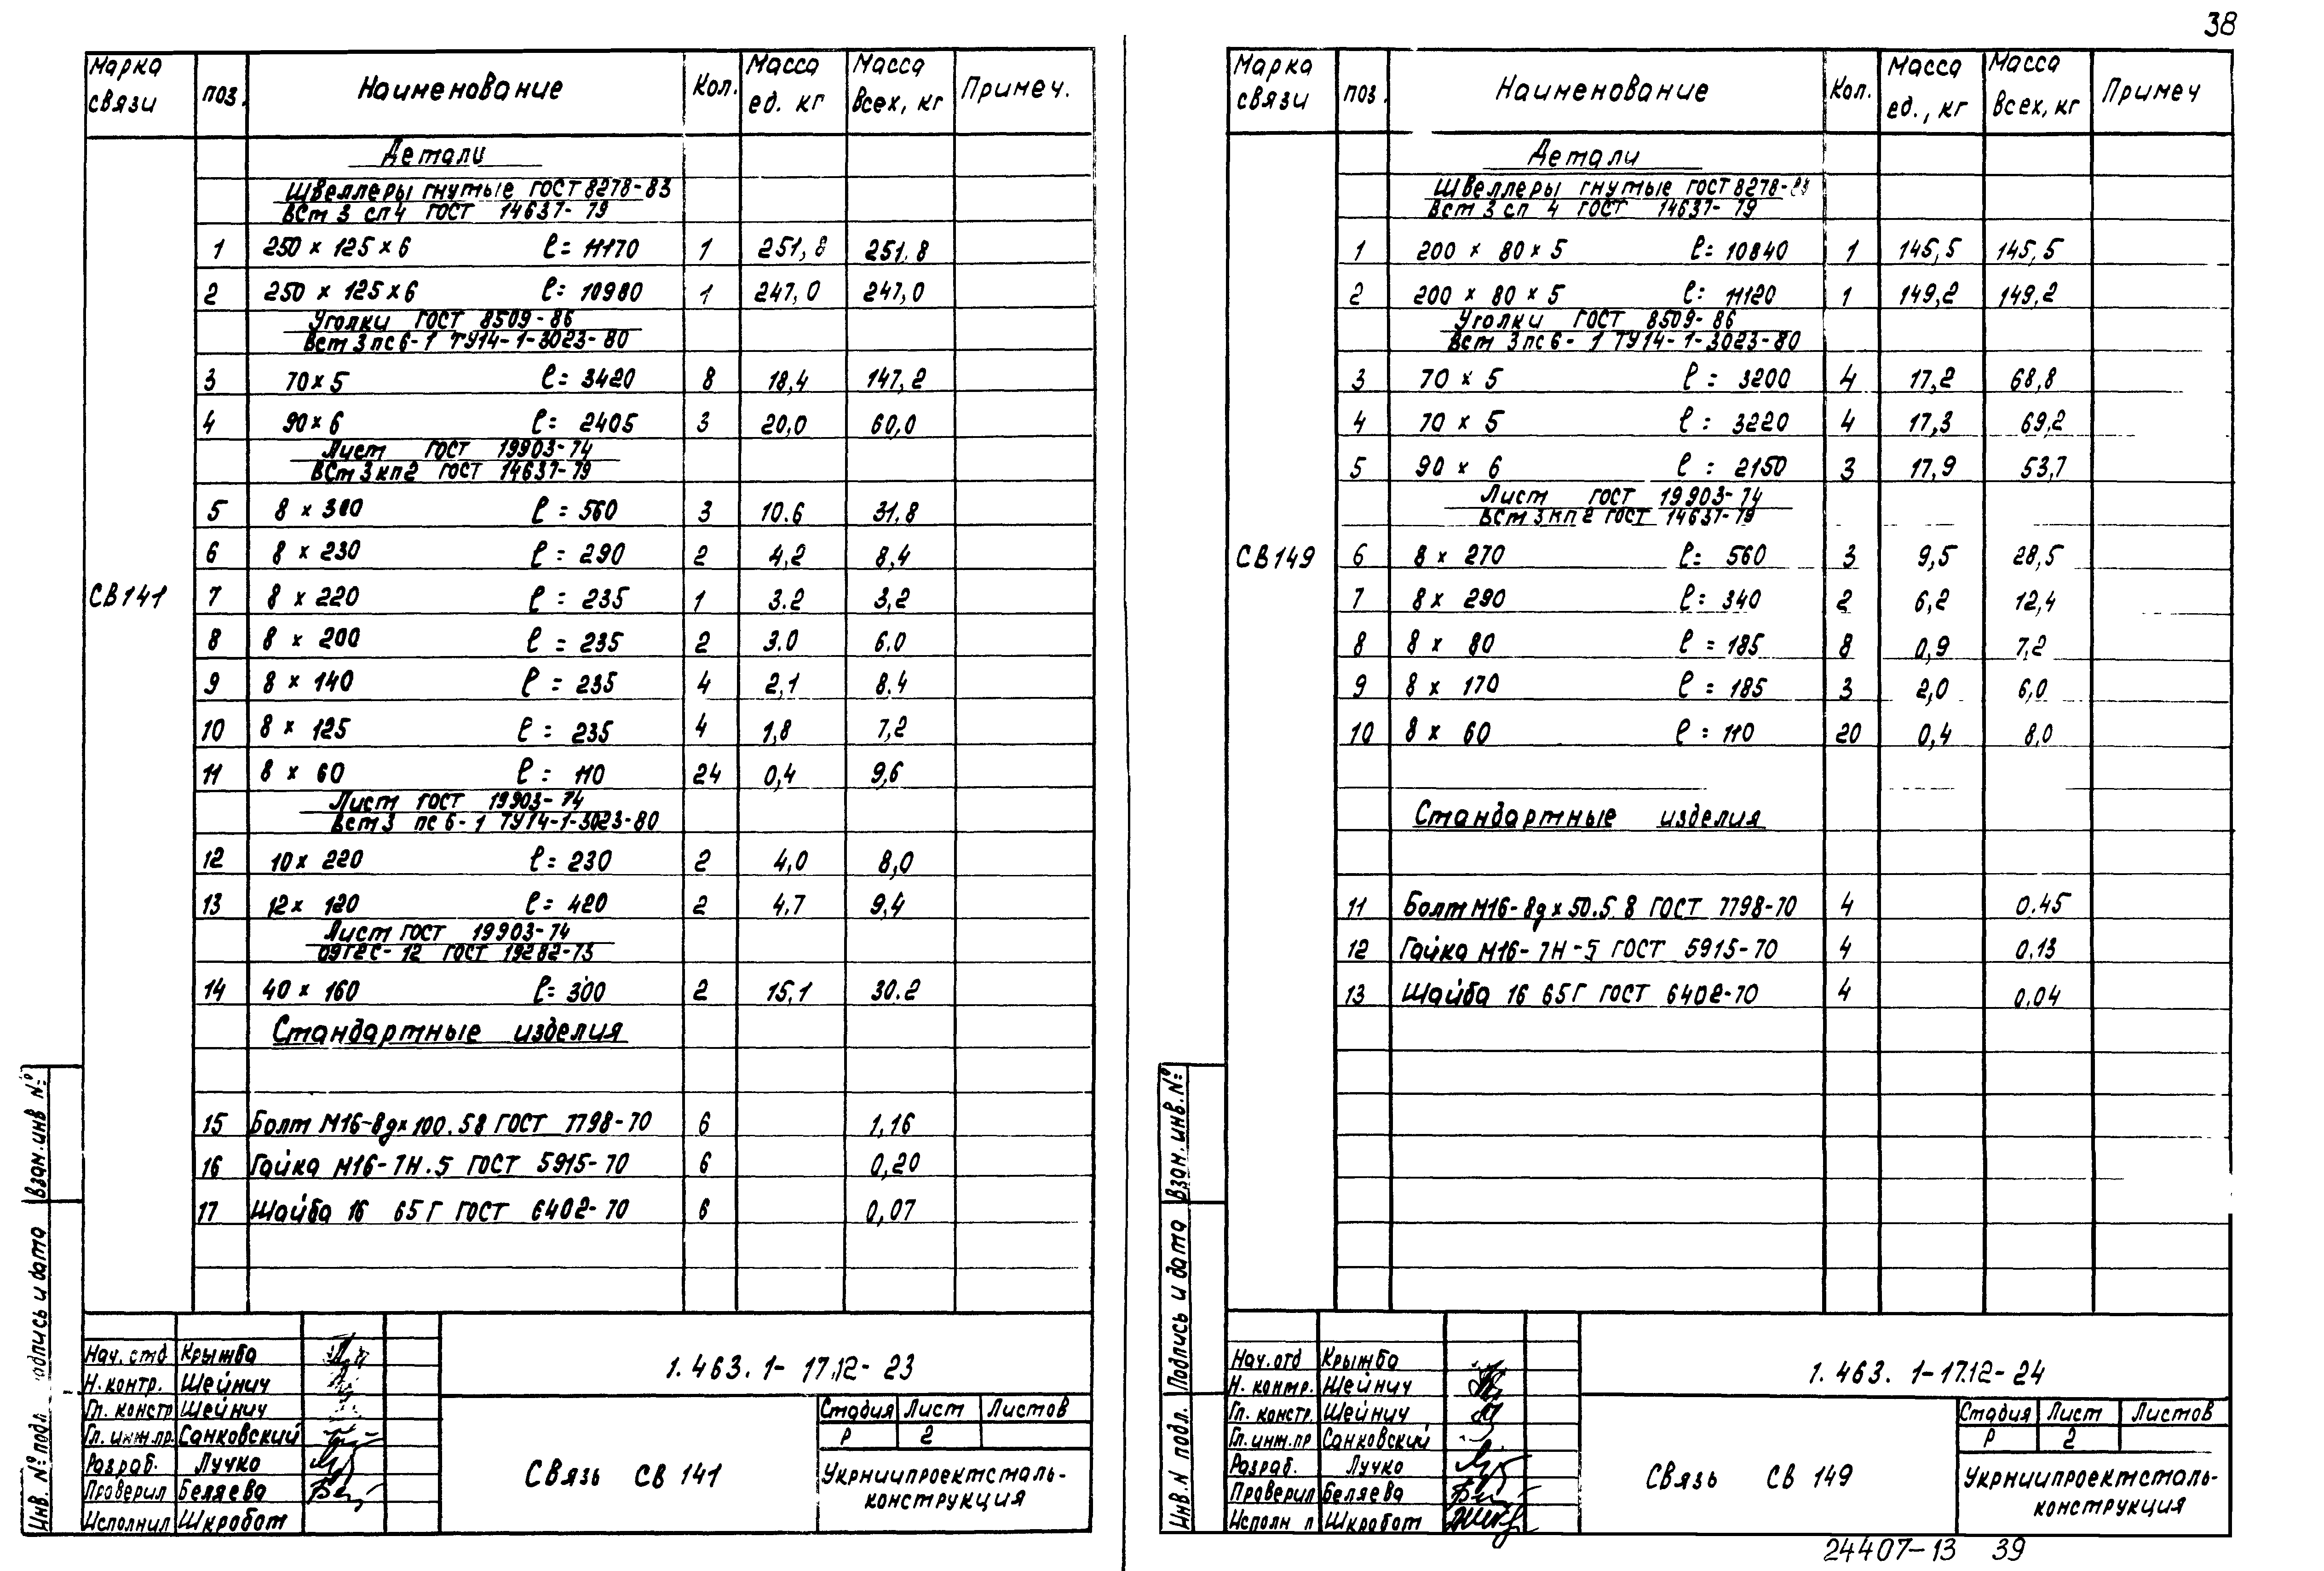 38
Марка связи поз. Наименование Кол. Масса ед. кг Масса всех, кг Примеч.
Детали
Швеллеры гнутые ГОСТ 8278-83
ВСт 3 сп 4 ГОСТ 14637-79
1 250 х 125 х 6 ℓ= 11170 1 251,8 251.8
2 250 х 125 х 6 ℓ= 10980 1 247,0 247,0
Уголки ГОСТ 8509-86
ВСт 3 пс 6-1 ТУ14-1-3023-80
3 70 х 5 ℓ= 3420 8 18,4 147,2
4 90 х 6 ℓ= 2405 3 20,0 60,0
Лист ГОСТ 19903-74
ВСт 3 кп 2 ГОСТ 14637-79
5 8 х 300 ℓ = 560 3 10.6 31.8
6 8 х 230 ℓ = 290 2 4,2 8,4
СВ141 7 8 х 220 ℓ = 235 1 3.2 3,2
8 8 х 200 ℓ = 235 2 3.0 6.0
9 8 х 140 ℓ = 235 4 2,1 8.4
10 8 х 125 ℓ = 235 4 1,8 7,2
11 8 х 60 ℓ = 110 24 0,4 9,6
Лист ГОСТ 19903-74
ВСт 3 пс 6-1 ТУ14-1-3023-80
12 10 х 220 ℓ= 230 2 4,0 8,0
13 12 х 120 ℓ= 420 2 4,7 9,4
Лист ГОСТ 19903-74
09Г2С-12 ГОСТ 19282-73
14 40 х 160 ℓ= 300 2 15,1 30.2
Стандартные изделия
15 Болт М16-8gх100.58 ГОСТ 7798-70 6 1,16
16 Гайка М16-7Н.5 ГОСТ 5915-70 6 0,20
17 Шайба 16 65Г ГОСТ 6402-70 6 0,07
Взан.инв №
одпись и дата
Инв. № подл
Нач. отд Крымба
Н. контр. Шейнич
Гл. констр Шейнич
Гл. инж.пр. Санковский
Разраб. Лучко
Проверил Беляева
Исполнил Шкробот
1.463.1-17.12-23
Связь СВ 141
Стадия Лист Листов
Р 2
Укрниипроектсталь-
конструкция
Марка связи поз. Наименование Кол. Масса ед., кг Масса всех, кг Примеч
Детали
Швеллеры гнутые ГОСТ 8278-
ВСт 3 сп 4 ГОСТ 14637-79
1 200 х 80 х 5 ℓ= 10840 1 145,5 145,5
2 200 х 80 х 5 ℓ= 11120 1 149,2 149,2
Уголки ГОСТ 8509-86
ВСт 3 пс 6-1 ТУ14-1-3023-80
3 70 х 5 ℓ = 3200 4 17,2 68,8
4 70 х 5 ℓ = 3220 4 17,3 69,2
5 90 х 6 ℓ = 2150 3 17,9 53,7
Лист ГОСТ 19903-74
ВСт 3 кп 2 ГОСТ 14637-79
СВ149 6 8 х 270 ℓ= 560 3 9,5 28,5
7 8 х 290 ℓ= 340 2 6,2 12,4
8 8 х 80 ℓ = 185 8 0,9 7,2
9 8 х 170 ℓ = 185 3 2,0 6,0
10 8 х 60 ℓ = 110 20 0,4 8,0
Стандартные изделия
11 Болт М16-8gх50.58 ГОСТ 7798-70 4 0.45
12 Гайка М16-7Н-5 ГОСТ 5915-70 4 0.13
13 Шайба 16 65Г ГОСТ 6402-70 4 0.04
Взан.инв.№
Подпись и дата
Инв.N подл.
Нач.отд Крымба
Н. контр. Шейнич
Гл. констр. Шейнич
Гл.инж.пр Санковский
Разраб. Лучко
Проверил Беляева
Исполн л Шкробот
1.463.1-17.12-24
Связь СВ 149
Стадия Лист Листов
Р 2
Укрниипроектсталь-
конструкция
24407-13 39